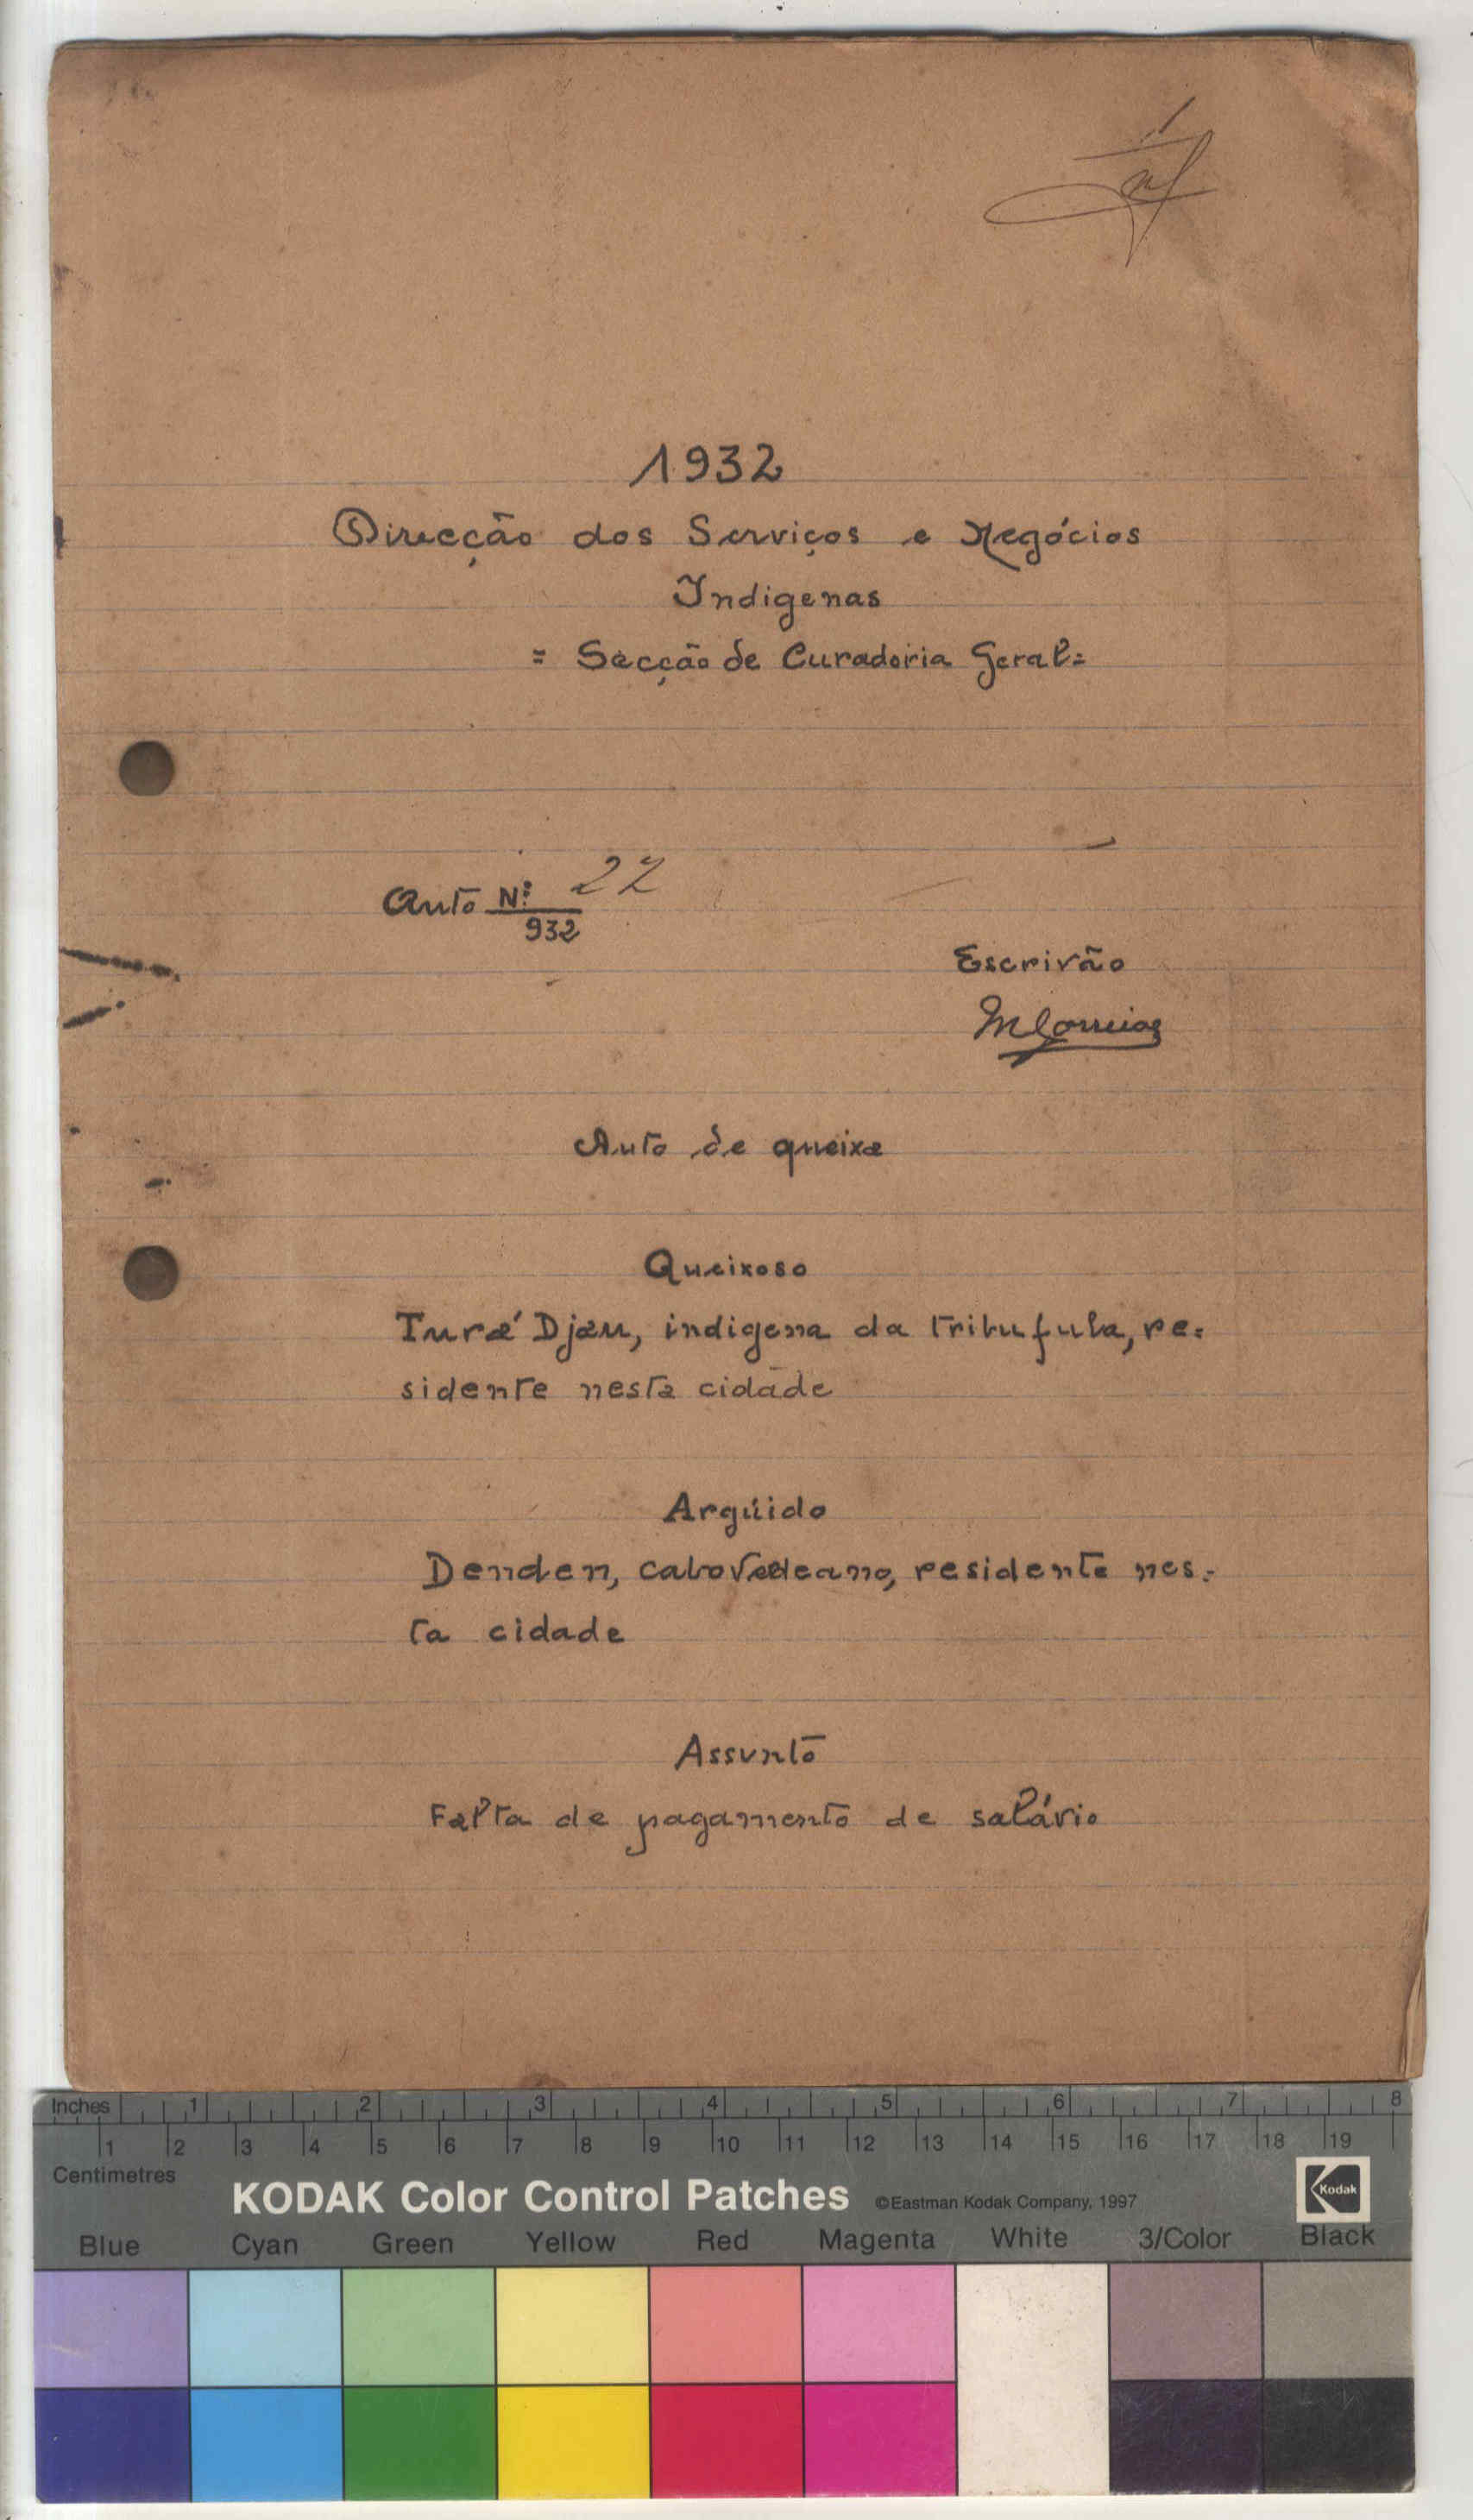 1932
Direcção dos Serviços e Negócios
Indigenas
= Secção de Curadoria Geral=
Auto Nº 22
932
Escrivão
MCorreia
Auto de queixa
Queixoso
Turé Djau, indigena da tribu fula, re=
sidente nesta cidade
Argüido
Denden, caboverdeano, residente nes=
ta cidade
Assunto
Falta de pagamento de salário
Inches 1 2 3 4 5 6 7 8
1 2 3 4 5 6 7 8 9 10 11 12 13 14 15 16 17 18 19
Centimetres
KODAK Color Control Patches ©Eastman Kodak Company, 1997 Kodak
Blue Cyan Green Yellow Red Magenta White 3/Color Black